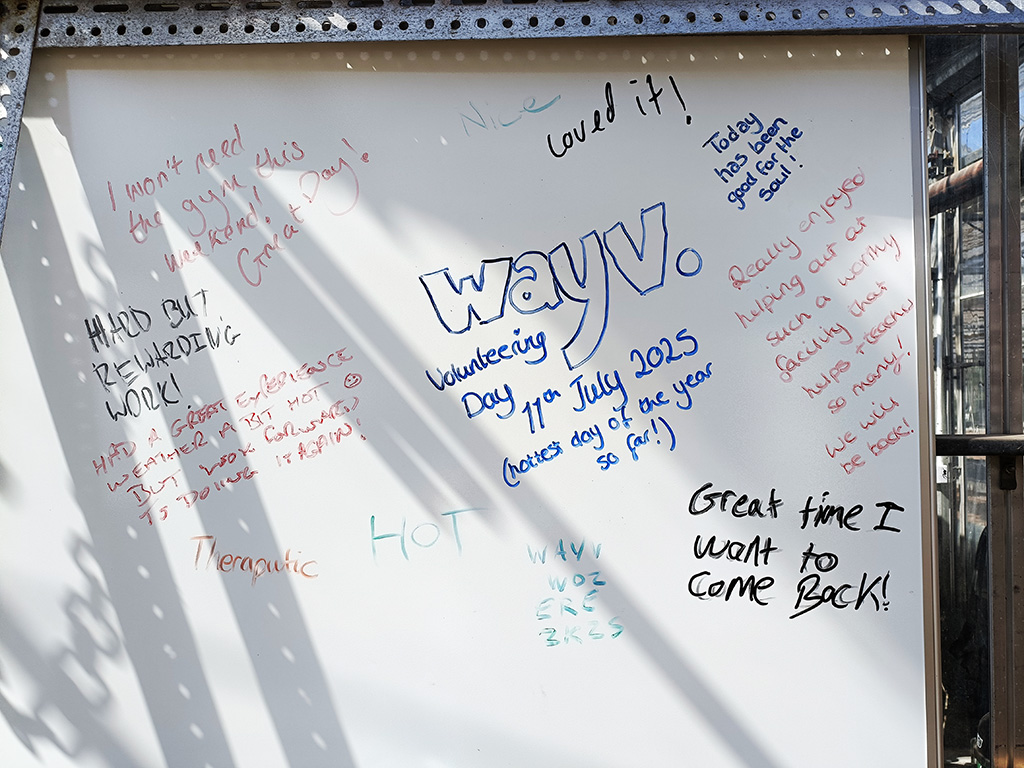 Nice
Loved it!
Today
has been
good for the
soul!
I won't need
the gym this
weekend!
Great Day!
wayv.
Volunteering
Day 11th July 2025
(hottest day of the year
so far!)
Really enjoyed
helping out at
such a worthy
facility that
helps + teaches
so many!
We will
be back!
HARD BUT
REWARDING
WORK!
HAD A GREAT EXPERIENCE
WEATHER A BIT HOT ☺
BUT LOOK FORWARD
TO DOING IT AGAIN!
Great time I
want to
come Back!
HOT
Therapeutic
WAYV
WOZ
ERE